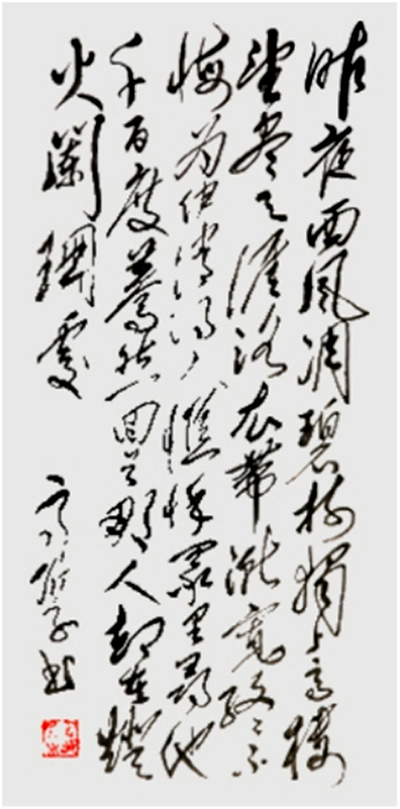 昨夜西风凋碧树獨上高樓
望尽天涯路衣帶漸寬终不
悔为伊消得人憔悴衆里尋他
千百度蓦然回首那人却在燈
火闌珊處
书